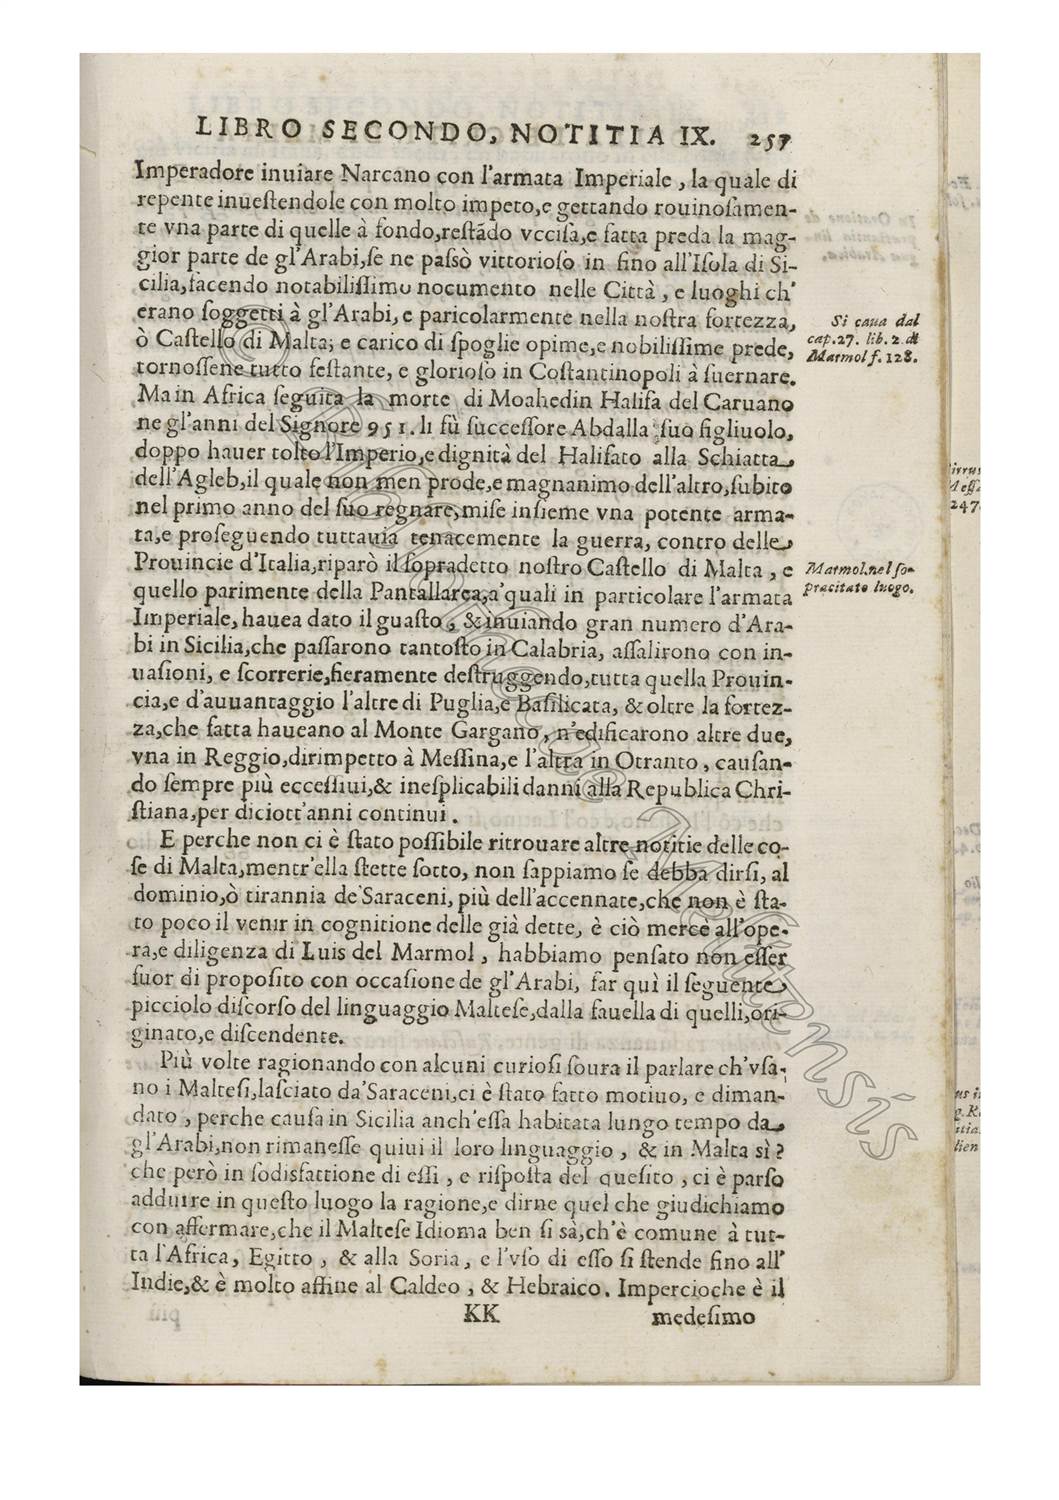 LIBRO SECONDO, NOTITIA IX. 257
Imperadore inuiare Narcano con l'armata Imperiale, la quale di
repente inueſtendole con molto impeto,e gettando rouinoſamen-
te vna parte di quelle à fondo,reſtãdo vcciſa,e fatta preda la mag-
gior parte de gl'Arabi,ſe ne paſsò vittorioſo in fino all'Iſola di Si-
cilia,facendo notabiliſſimo nocumento nelle Città, e luoghi ch'
erano ſoggetti à gl'Arabi,e paricolarmente nella noſtra fortezza,
ò Caſtello di Malta; e carico di ſpoglie opime,e nobiliſſime prede,
tornoſſene tutto feſtante, e glorioſo in Coſtantinopoli à ſuernare.
Ma in Africa ſeguita la morte di Moahedin Halifa del Caruano
ne gl'anni del Signore 951. li fù ſucceſſore Abdalla ſuo figliuolo,
doppo hauer tolto l'Imperio,e dignità del Halifato alla Schiatta
dell'Agleb,il quale non men prode,e magnanimo dell'altro,ſubito
nel primo anno del ſuo regnare,miſe inſieme vna potente arma-
ta,e proſeguendo tuttauia tenacemente la guerra, contro delle
Prouincie d'Italia,riparò il ſopradetto noſtro Caſtello di Malta, e
quello parimente della Pantallarea,a'quali in particolare l'armata
Imperiale, hauea dato il guaſto, & inuiando gran numero d'Ara-
bi in Sicilia,che paſſarono tantoſto in Calabria, aſſalirono con in-
uaſioni, e ſcorrerie,fieramente deſtruggendo,tutta quella Prouin-
cia,e d'auuantaggio l'altre di Puglia,e Baſilicata, & oltre la fortez-
za,che fatta haueano al Monte Gargano, n'edificarono altre due,
vna in Reggio,dirimpetto à Meſſina,e l'altra in Otranto, cauſan-
do ſempre più ecceſſiui,& ineſplicabili danni alla Republica Chri-
ſtiana,per diciott'anni continui.
E perche non ci è ſtato poſſibile ritrouare altre notitie delle co-
ſe di Malta,mentr'ella ſtette ſotto, non ſappiamo ſe debba dirſi, al
dominio,ò tirannia de'Saraceni, più dell'accennate,che non è ſta-
to poco il venir in cognitione delle già dette, è ciò mercè all'ope-
ra,e diligenza di Luis del Marmol, habbiamo penſato non eſſer
fuor di propoſito con occaſione de gl'Arabi, far quì il ſeguente
picciolo diſcorſo del linguaggio Malteſe,dalla fauella di quelli,ori-
ginato,e diſcendente.
Più volte ragionando con alcuni curioſi ſoura il parlare ch'vſa-
no i Malteſi,laſciato da'Saraceni,ci è ſtato fatto motiuo, e diman-
dato, perche cauſa in Sicilia anch'eſſa habitata lungo tempo da
gl'Arabi,non rimaneſſe quiui il loro linguaggio, & in Malta sì?
che però in ſodisfattione di eſſi, e riſpoſta del queſito, ci è parſo
addurre in queſto luogo la ragione,e dirne quel che giudichiamo
con affermare,che il Malteſe Idioma ben ſi sà,ch'è comune à tut-
ta l'Africa, Egitto, & alla Soria, e l'vſo di eſſo ſi ſtende fino all'
Indie,& è molto affine al Caldeo, & Hebraico. Impercioche è il
KK medeſimo
Si caua dal
cap.27. lib. 2. di
Marmol f. 128.
Marmol.nel ſo-
pracitato luogo.